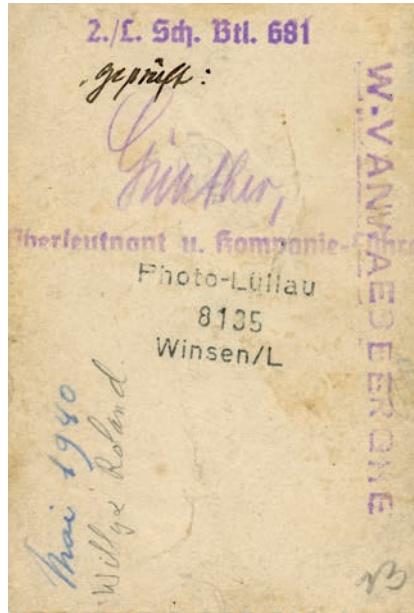 2./L. Sch. Btl. 681
geprüft:
Günther,
Oberleutnant u. Kompanie-Führer
Photo-Lüllau
8135
Winsen/L
Mai 1940
Willy & Roland